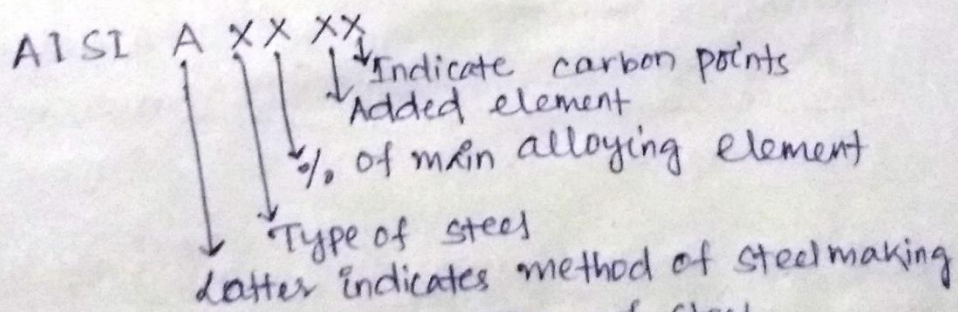 AISI A XX XX
Indicate carbon points
Added element
% of main alloying element
Type of steel
Latter indicates method of steelmaking